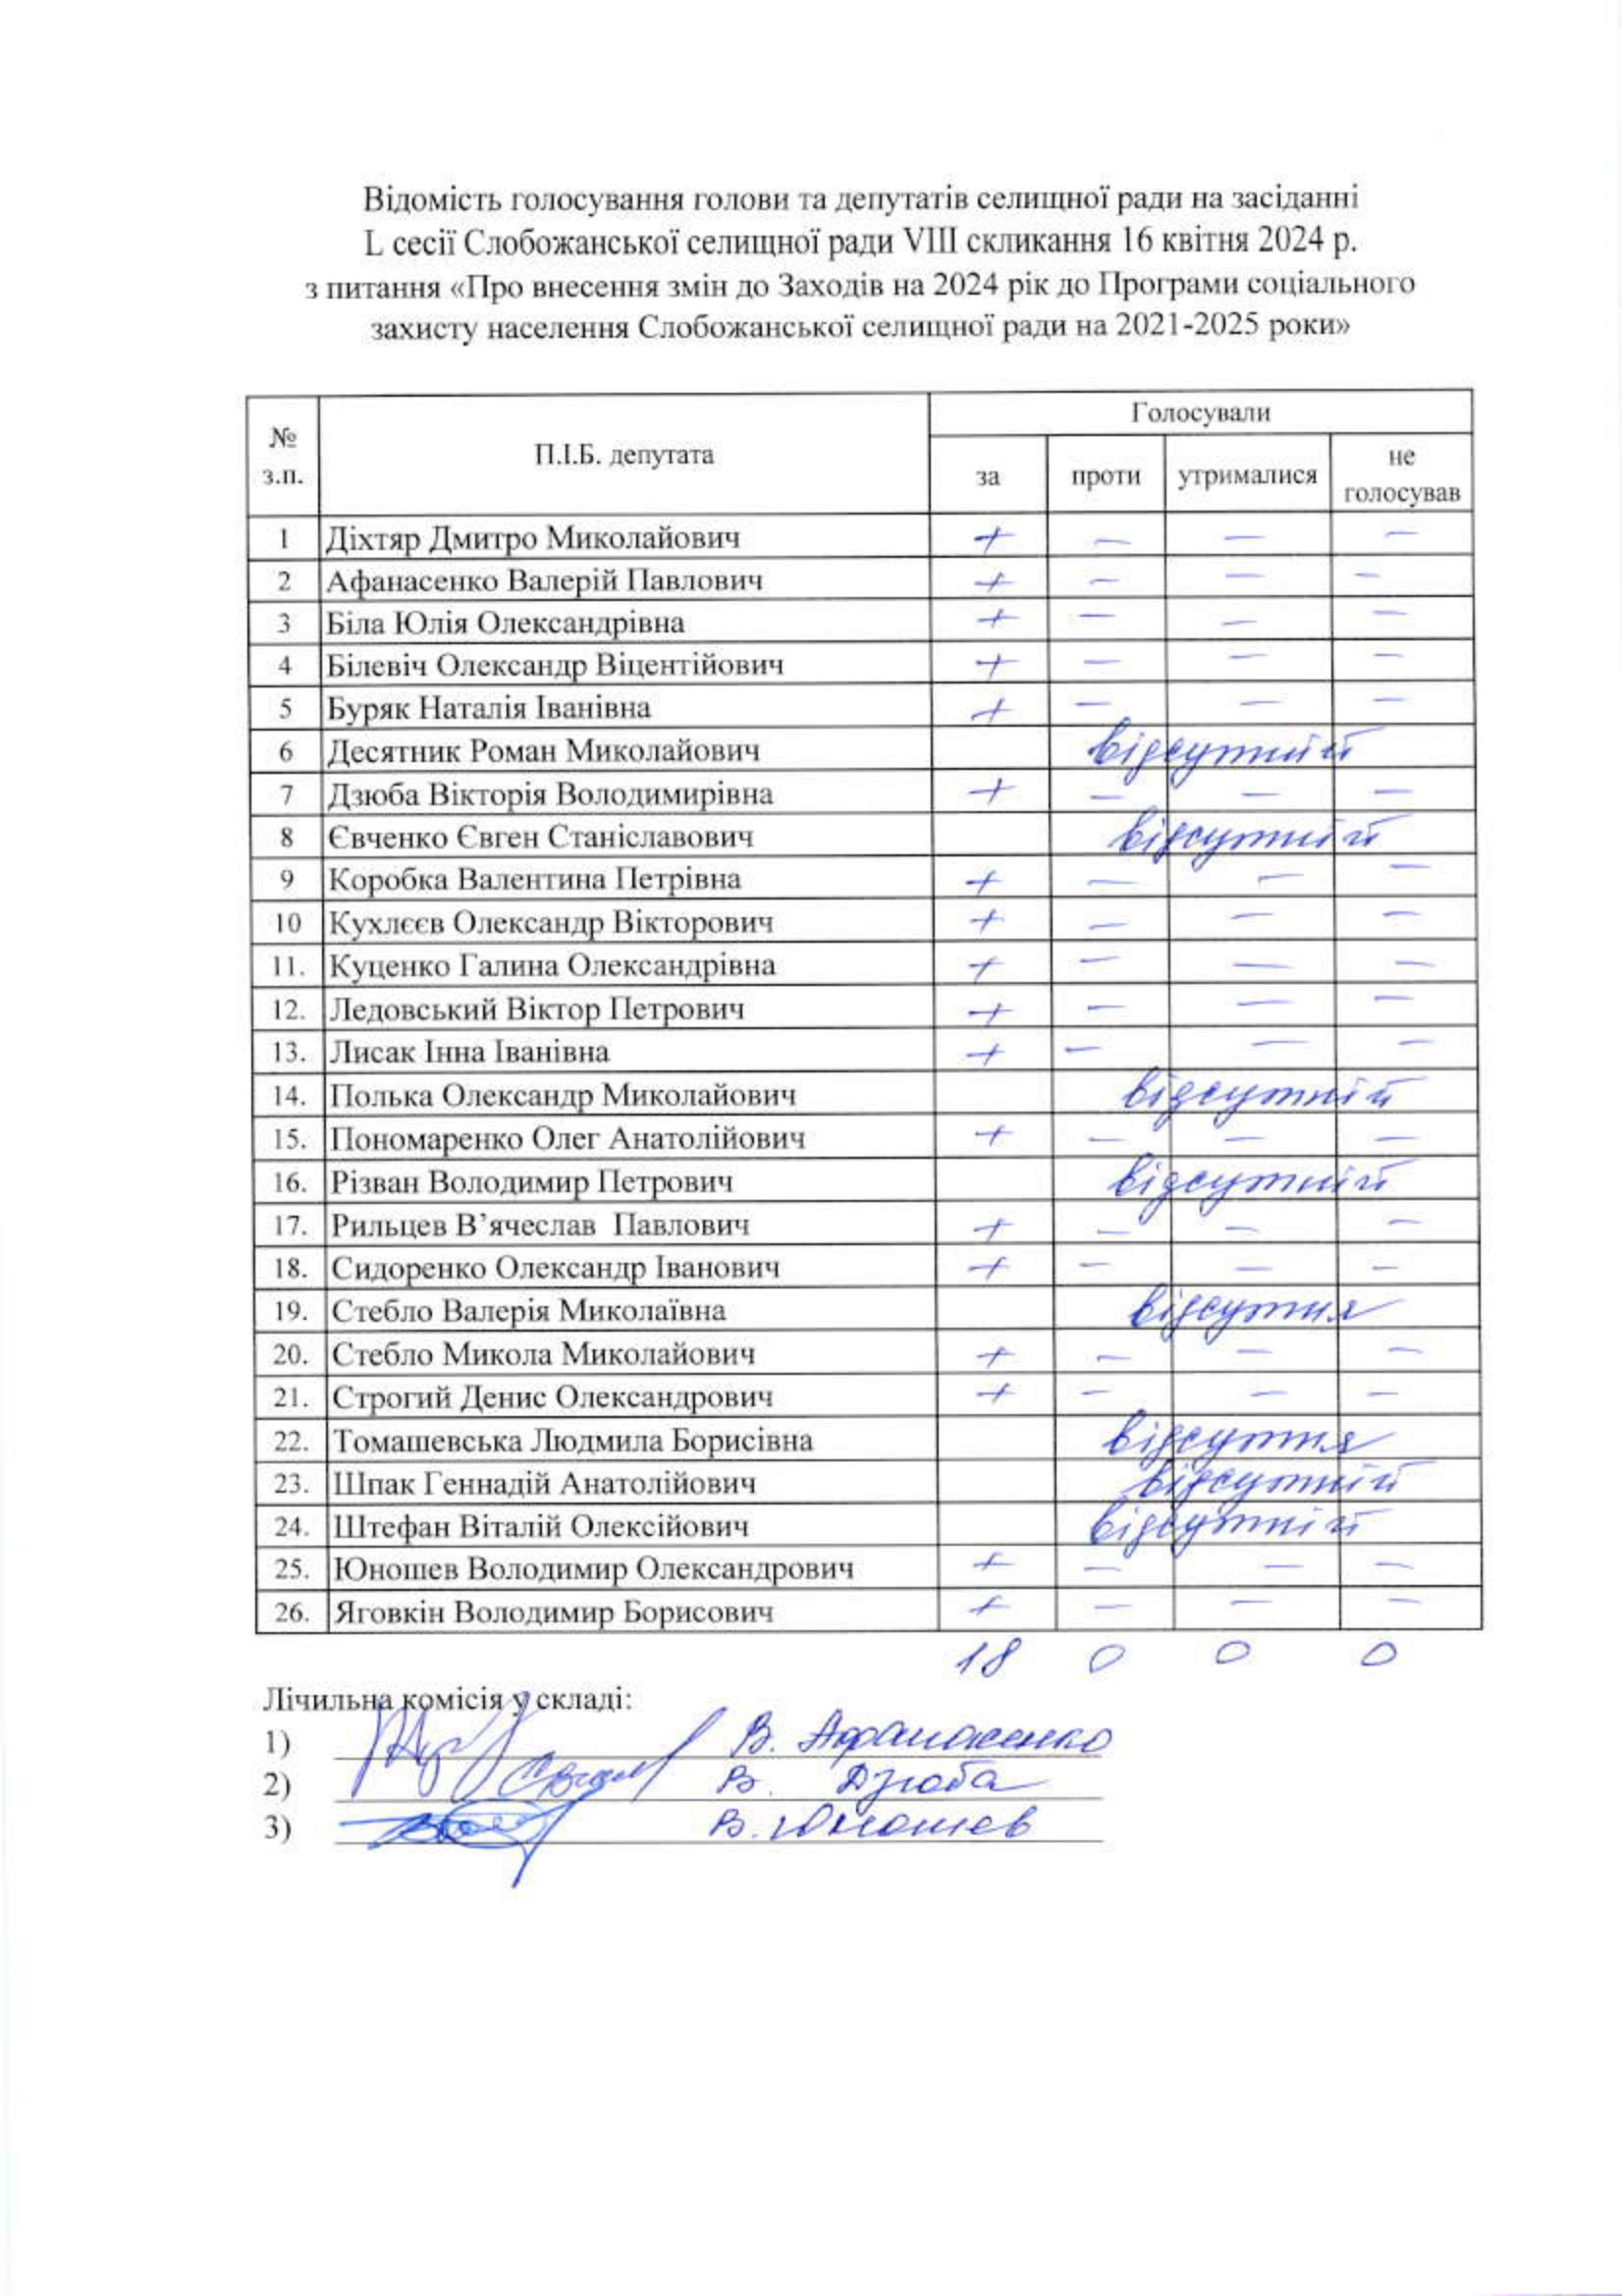 Відомість голосування голови та депутатів селищної ради на засіданні
L сесії Слобожанської селищної ради VIII скликання 16 квітня 2024 р.
з питання «Про внесення змін до Заходів на 2024 рік до Програми соціального
захисту населення Слобожанської селищної ради на 2021-2025 роки»
№ з.п. П.І.Б. депутата Голосували
за проти утрималися не голосував
1 Діхтяр Дмитро Миколайович + — — —
2 Афанасенко Валерій Павлович + — — —
3 Біла Юлія Олександрівна + — — —
4 Білевіч Олександр Віцентійович + — — —
5 Буряк Наталія Іванівна + — — —
6 Десятник Роман Миколайович відсутній
7 Дзюба Вікторія Володимирівна + — — —
8 Євченко Євген Станіславович відсутній
9 Коробка Валентина Петрівна + — — —
10 Кухлєєв Олександр Вікторович + — — —
11. Куценко Галина Олександрівна + — — —
12. Ледовський Віктор Петрович + — — —
13. Лисак Інна Іванівна + — — —
14. Полька Олександр Миколайович відсутній
15. Пономаренко Олег Анатолійович + — — —
16. Різван Володимир Петрович відсутній
17. Рильцев В’ячеслав Павлович + — — —
18. Сидоренко Олександр Іванович + — — —
19. Стебло Валерія Миколаївна відсутня
20. Стебло Микола Миколайович + — — —
21. Строгий Денис Олександрович + — — —
22. Томашевська Людмила Борисівна відсутня
23. Шпак Геннадій Анатолійович відсутній
24. Штефан Віталій Олексійович відсутній
25. Юношев Володимир Олександрович + — — —
26. Яговкін Володимир Борисович + — — —
18 0 0 0
Лічильна комісія у складі:
1) В. Афанасенко
2) В. Дзюба
3) В. Юношев